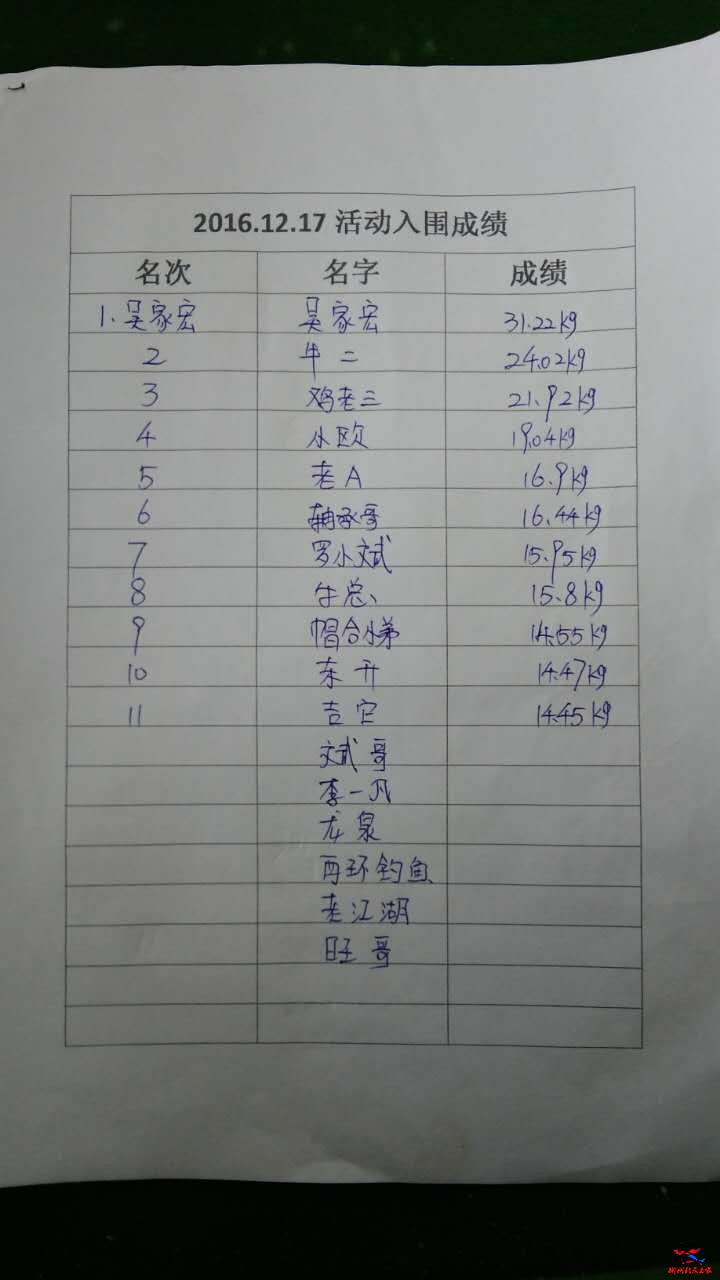 2016.12.17 活动入围成绩
名次 名字 成绩
1. 吴家宏 吴家宏 31.22kg
2 牛二 24.02kg
3 鸡老三 21.92kg
4 小欧 19.04kg
5 老A 16.9kg
6 轴承哥 16.44kg
7 罗小斌 15.95kg
8 牛总 15.8kg
9 帽合小弟 14.55kg
10 东升 14.47kg
11 吉它 14.45kg
斌哥
李一凡
龙泉
再环钓鱼
老江湖
旺哥